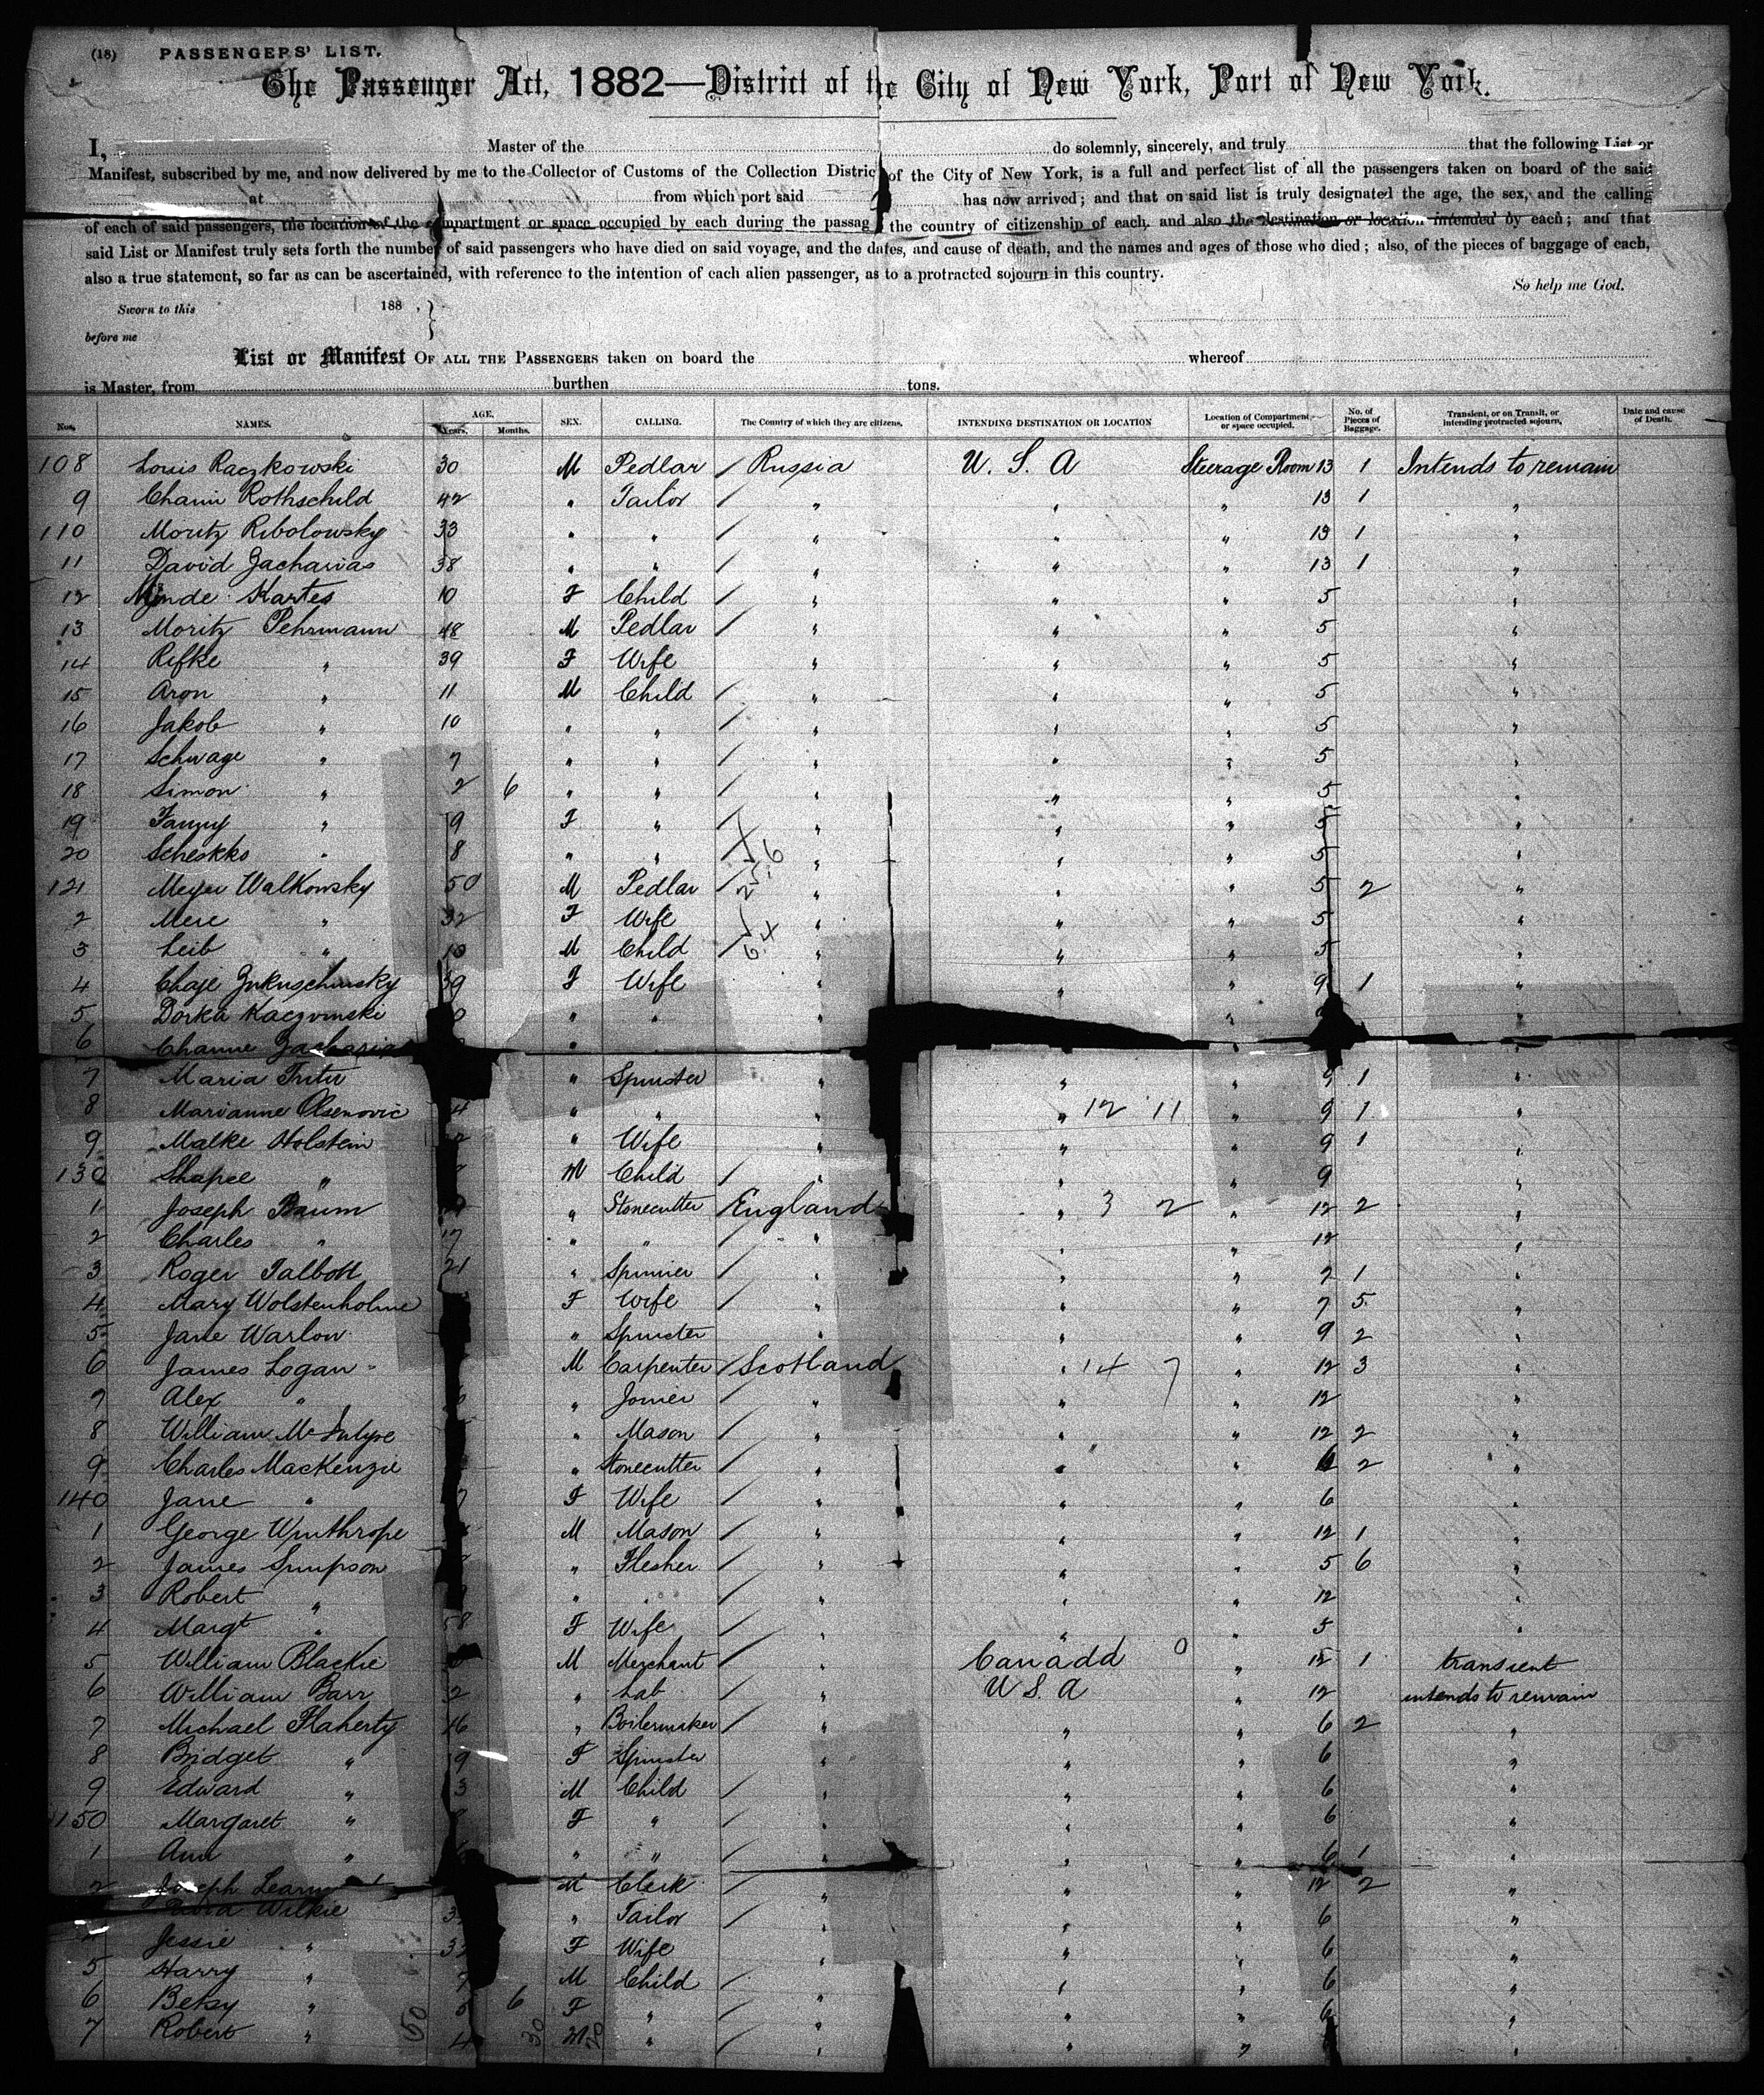 (18) PASSENGERS' LIST.
The Passenger Act, 1882—District of the City of New York, Port of New York.
I, Master of the do solemnly, sincerely, and truly that the following List or
Manifest, subscribed by me, and now delivered by me to the Collector of Customs of the Collection Distric of the City of New York, is a full and perfect list of all the passengers taken on board of the said
at from which port said has now arrived; and that on said list is truly designated the age, the sex, and the calling
of each of said passengers, the location of the compartment or space occupied by each during the passag the country of citizenship of each, and also the destination or location intended by each; and that
said List or Manifest truly sets forth the number of said passengers who have died on said voyage, and the dates, and cause of death, and the names and ages of those who died; also, of the pieces of baggage of each,
also a true statement, so far as can be ascertained, with reference to the intention of each alien passenger, as to a protracted sojourn in this country.
So help me God.
Sworn to this 188 , }
before me
List or Manifest OF ALL THE PASSENGERS taken on board the whereof
is Master, from burthen tons.
Nos. NAMES. AGE. Years. Months. SEX. CALLING. The Country of which they are citizens. INTENDING DESTINATION OR LOCATION Location of Compartment or space occupied. No. of Pieces of Baggage. Transient, or on Transit, or intending protracted sojourn. Date and cause of Death.
108 Louis Raczkowski 30 M Pedlar / Russia U. S. A Steerage Room 13 1 Intends to remain
9 Chaim Rothschild 42 " Tailor / " " " 13 1 "
110 Moritz Ribolowsky 33 " " / " " " 13 1 "
11 David Zacharias 38 " " / " " " 13 1 "
12 Minde Kartes 10 F Child / " " " 5 "
13 Moritz Pehrmann 48 M Pedlar / " " " 5 "
14 Rifke " 39 F Wife " " " 5 "
15 Aron " 11 M Child / " " " 5 "
16 Jakob " 10 " " / " " " 5 "
17 Schwage " 7 " " / " " " 5 "
18 Simon " 2 6 " " / " " " 5 "
19 Fanny " 9 F " / " " " 5 "
20 Scheskko " 8 " " / " " " 5 "
121 Meyer Walkowsky 50 M Pedlar / " " " 5 2 "
2 Mere " 32 F Wife " " " 5 "
3 Leib " 10 M Child / " " " 5 "
4 Chaje Zukuschinsky 39 F Wife " " " 9 1 "
5 Dorka Kaczvinski 0 " " " "
6 Channe Zacharias "
7 Maria Tritu " Spinster " " " 9 1 "
8 Marianne Olsenovic 4 " " " " 12 11 " 9 1 "
9 Malke Holstein " Wife " " " 9 1 "
130 Shapee " M Child / " " " 9 "
1 Joseph Baum " Stonecutter England " 3 2 " 12 2 "
2 Charles " 17 " " / " " " 12 "
3 Roger Talbott 21 " Spinner / " " " 7 1 "
4 Mary Wolstenholme F Wife / " " " 7 5 "
5 Jane Warlow " Spinster " " " 9 2 "
6 James Logan M Carpenter / Scotland " 14 7 " 12 3 "
7 Alex " 6 " Joiner / " " " 12 "
8 William McIntyre " Mason / " " " 12 2 "
9 Charles MacKenzie " Stonecutter / " " " 6 2 "
140 Jane " 7 F Wife / " " " 6 "
1 George Winthrope M Mason / " " " 12 1 "
2 James Simpson " Flesher / " " " 5 6 "
3 Robert " " " / " " " 12 "
4 Margt " 58 F Wife / " " " 5 "
5 William Blackie M Merchant / " Canadd 0 " 12 1 transient
6 William Barr 2 " Lab / " U S. A " 12 intends to remain
7 Michael Flaherty 46 " Boilermaker / " " " 6 2 "
8 Bridget " 19 F Spinster " " " 6 "
9 Edward " 3 M Child / " " " 6 "
1150 Margaret " F " / " " " 6 "
1 Ann " " " / " " " 6 1 "
2 Joseph M Clerk / " " " 12 2 "
Wilkie 3 " Tailor / " " " 6 "
Jessie " 33 F Wife " " " 6 "
5 Harry " 7 M Child / " " " 6 "
6 Betsy " 5 6 F " / " " " 6 "
7 Robert " 4 M " / " " " "